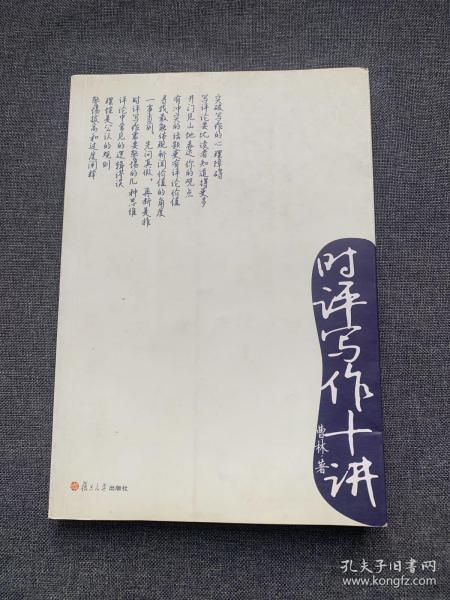 突破写作的心理障碍
写评论要比读者知道得更多
开门见山地表达你的观点
有冲突的话题更有评论价值
寻找最能体现新闻价值的角度
一事当前，先问真假，再断是非
时评写作需要警惕的几种思维
评论中常见的逻辑谬误
理性是公认的规则
警惕拔高和过度阐释
时评写作十讲
曹林 著
复旦大学出版社
孔夫子旧书网
www.kongfz.com